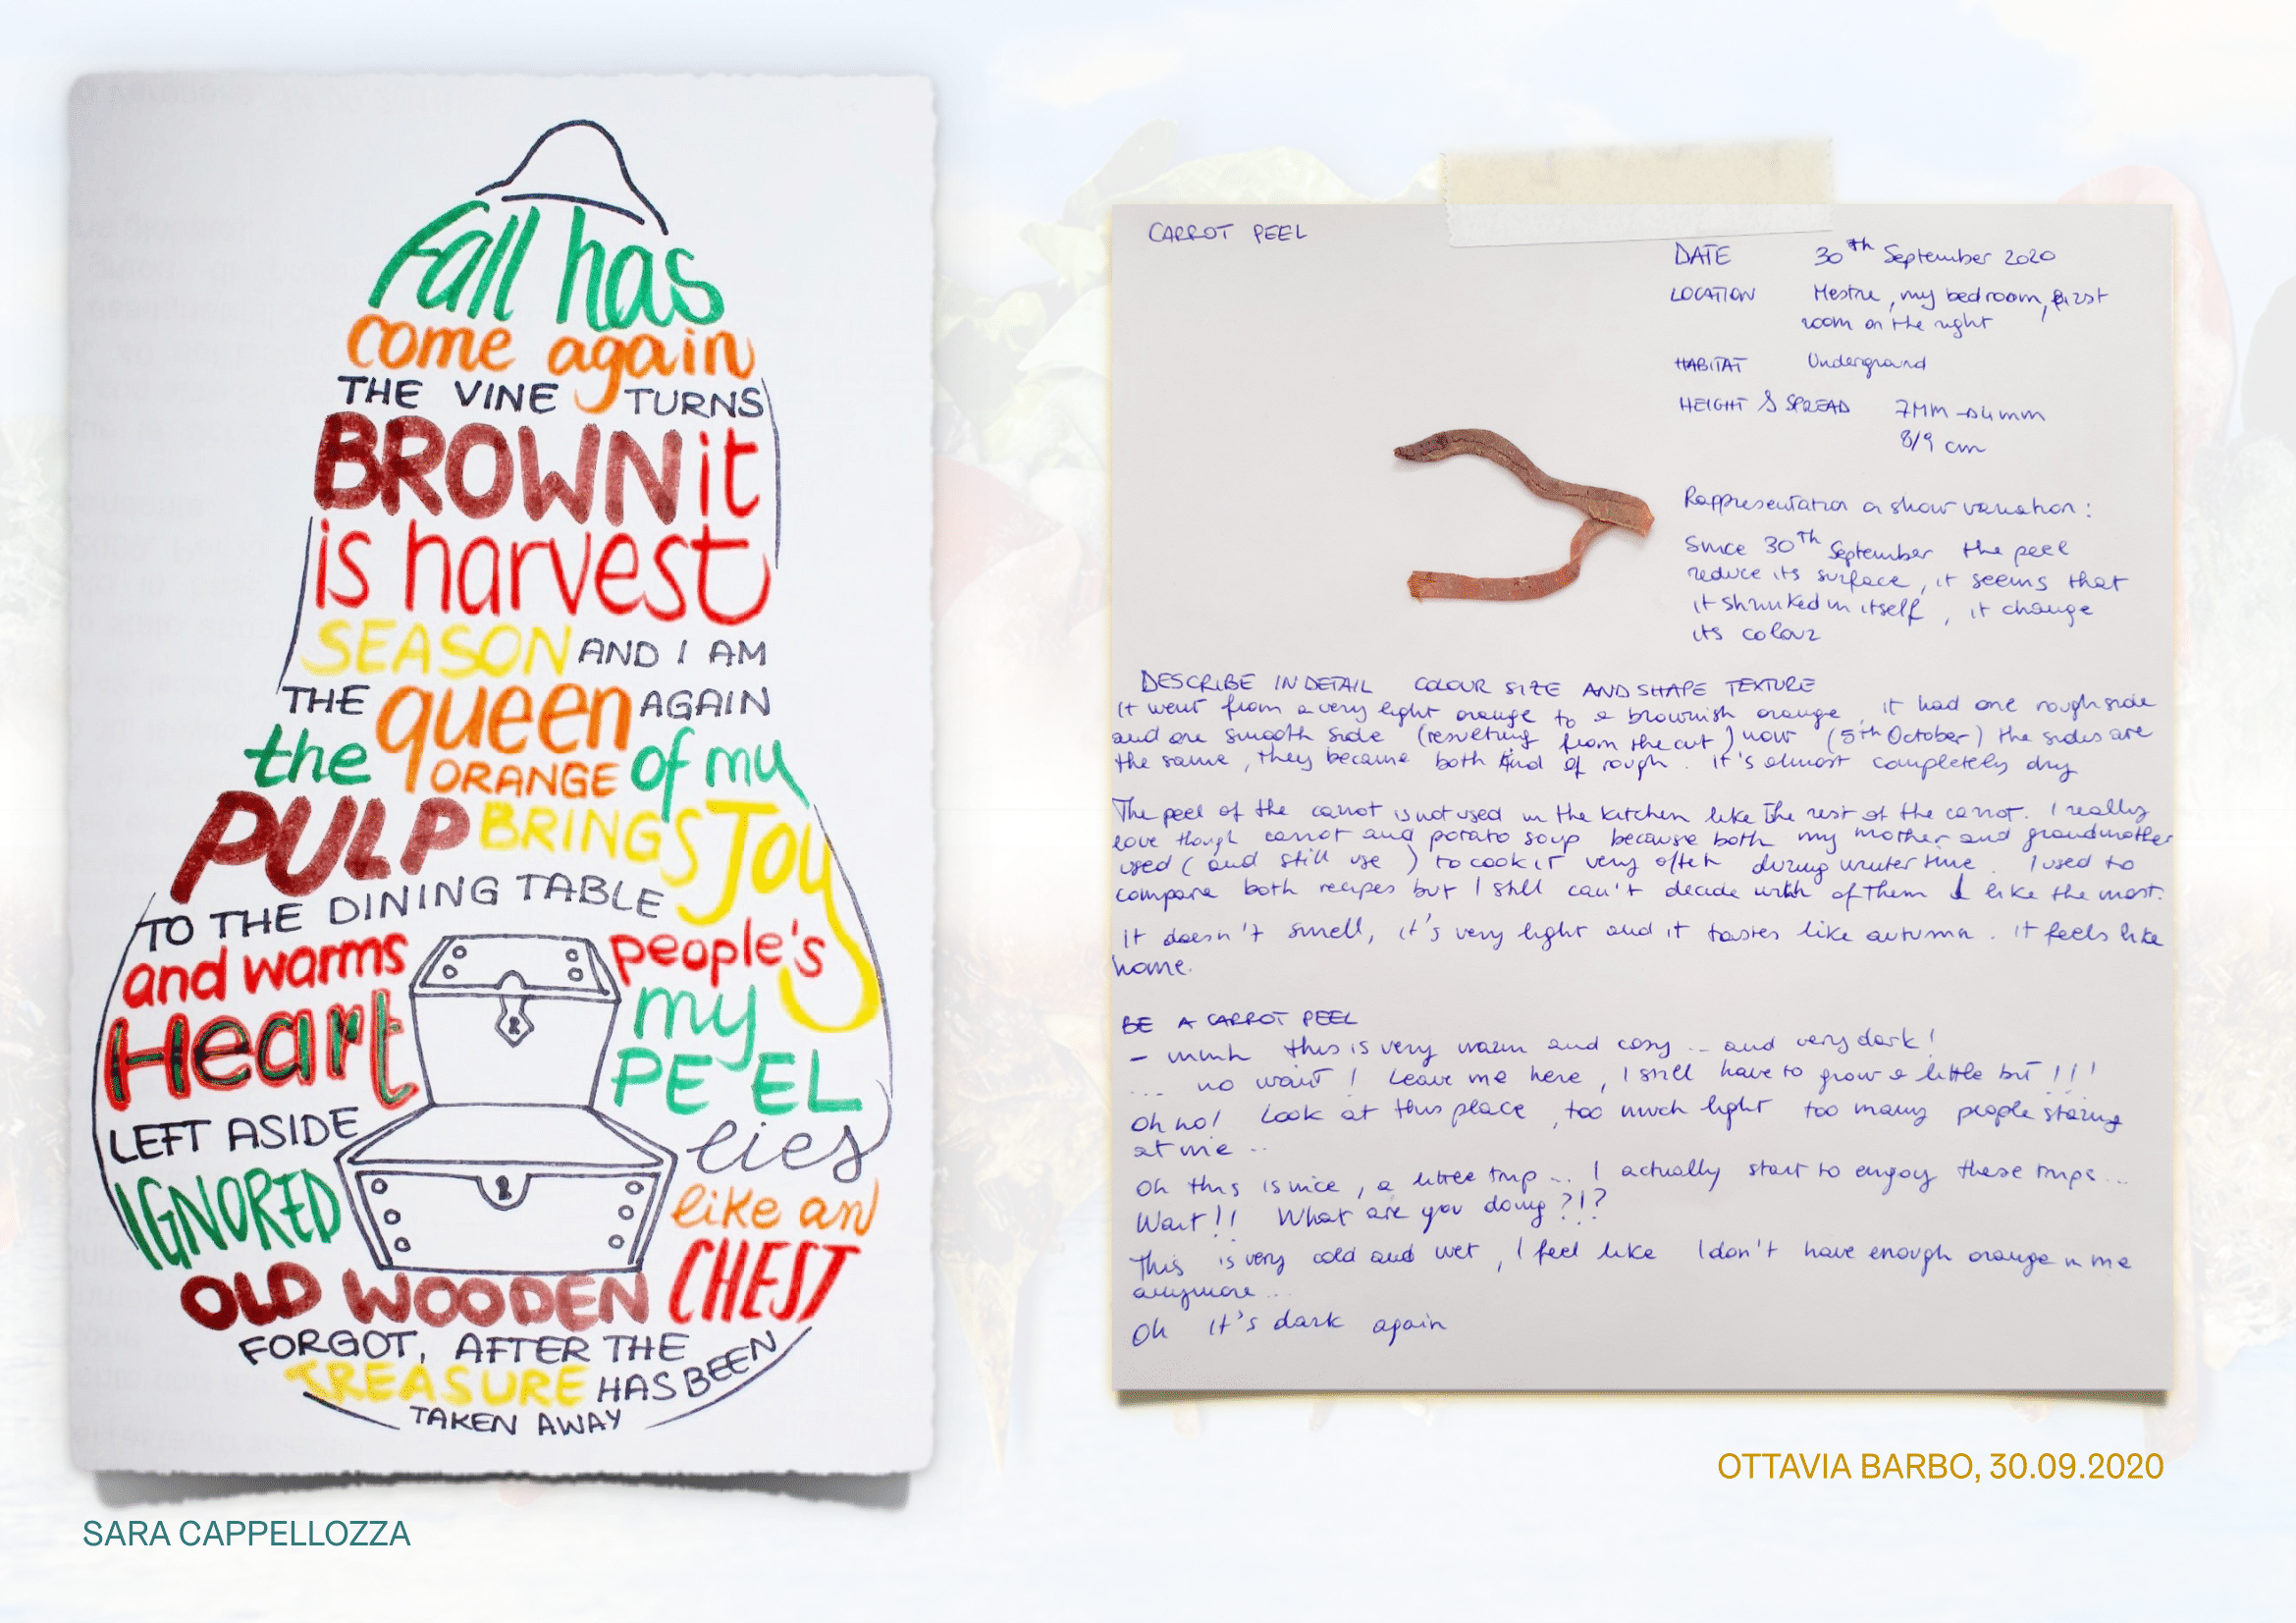 Fall has
come again
THE VINE TURNS
BROWN it
is harvest
SEASON AND I AM
THE queen AGAIN
the ORANGE of my
PULP BRINGS JOY
TO THE DINING TABLE
and warms people's
Heart my
PEEL
LEFT ASIDE lies
IGNORED like an
OLD WOODEN CHEST
FORGOT, AFTER THE
TREASURE HAS BEEN
TAKEN AWAY
SARA CAPPELLOZZA
CARROT PEEL
DATE 30th September 2020
LOCATION Mestre, my bedroom, first
room on the right
HABITAT Underground
HEIGHT & SPREAD 7MM → 4mm
8/9 cm
Rappresentation a show variation:
Since 30th September the peel
reduce its surface, it seems that
it shrinked in itself, it change
its colour
DESCRIBE IN DETAIL COLOUR SIZE AND SHAPE TEXTURE
It went from a very light orange to a brownish orange, it had one rough side
and one smooth side (resulting from the cut) now (5th October) the sides are
the same, they became both kind of rough. it's almost completely dry
The peel of the carrot is not used in the kitchen like the rest of the carrot. I really
love though carrot and potato soup because both my mother and grandmother
used (and still use) to cook it very often during winter time. I used to
compare both recipes but I still can't decide witch of them I like the most.
it doesn't smell, it's very light and it tastes like autumn. it feels like
home.
BE A CARROT PEEL
- mmh this is very warm and cosy... and very dark!
... no wait! Leave me here, I still have to grow a little bit!!!
Oh no! Look at this place, too much light too many people staring
at me ..
Oh this is nice, a little trip... I actually start to enjoy these trips...
Wait!! What are you doing?!?
This is very cold and wet, I feel like I don't have enough orange in me
anymore...
Oh it's dark again
OTTAVIA BARBO, 30.09.2020